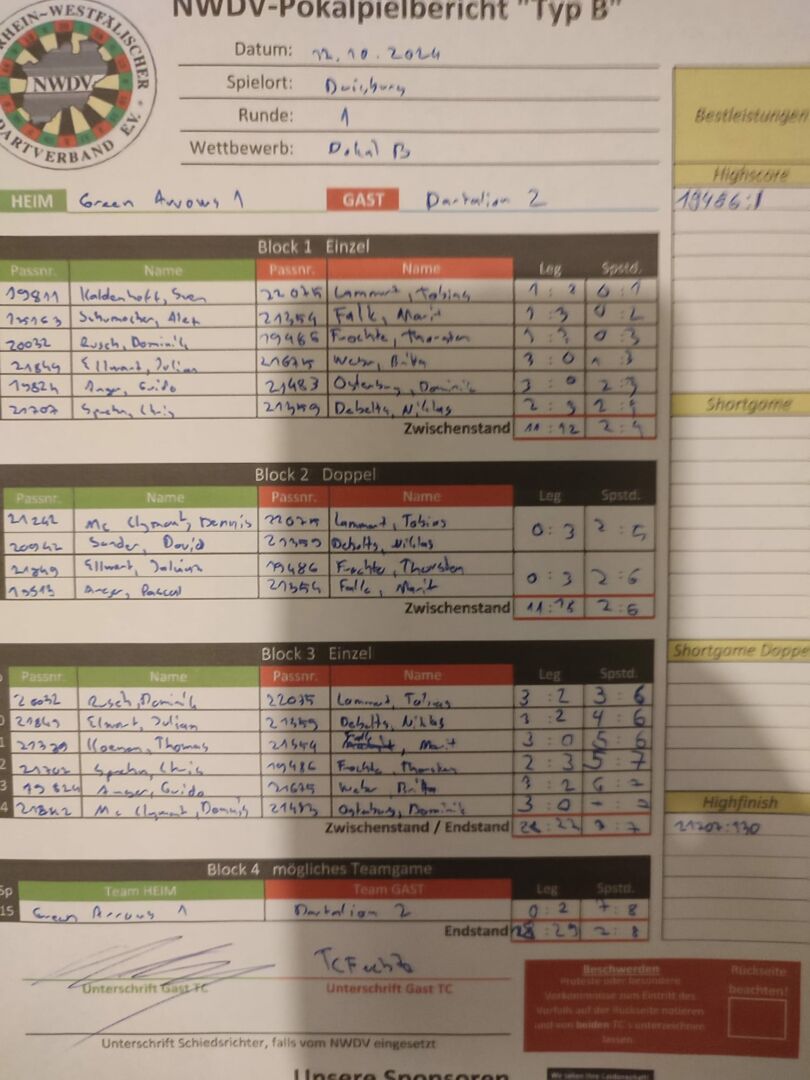 NWDV-Pokalpielbericht "Typ B"
RHEIN-WESTFÄLISCHER
NWDV
DARTVERBAND E.V.
Datum: 12.10.2024
Spielort: Duisburg
Runde: 1
Wettbewerb: Pokal B
Bestleistungen
Highscore
19486:1
HEIM Green Arrows 1 GAST Dartalion 2
Block 1 Einzel
Passnr. Name Passnr. Name Leg Spstd.
19811 Kaldenhoff, Sven 22075 Lammert, Tobias 0:1
Schumacher, Alex 21354 Falk, Marit 1:3
20032 Rusch, Dominik Frochte, Thorsten 0:3
21849 Ellwart, Julian 21675 Weber, Britta 3:0
19824 Anger, Guido 21483 Ostenburg, Dominik 3:0 2:3
21707 Spehn, Chris 21359 Debelts, Niklas 2:3
Zwischenstand 11:12 2:4
Shortgame
Block 2 Doppel
Passnr. Name Passnr. Name Leg Spstd.
Mc Clymont, Dennis 22075 Lammert, Tobias 0:3 2:5
20942 Sander, David 21359 Debelts, Niklas
21849 Ellwart, Julian 19486 Frochte, Thorsten 0:3 2:6
19513 Anger, Pascal 21354 Falk, Marit
Zwischenstand 11:18 2:6
Block 3 Einzel
Shortgame Doppel
Passnr. Name Passnr. Name Leg Spstd.
20032 Rusch, Dominik 22075 Lammert, Tobias 3:2 3:6
21849 Ellwart, Julian 21359 Debelts, Niklas 3:2 4:6
21379 Koenen, Thomas 21354 Falk, Marit 3:0 5:6
Spehn, Chris 19486 Frochte, Thorsten 2:3 5:7
19824 Anger, Guido 21675 Weber, Britta 3:2 6:7
Mc Clymont, Dennis 21483 Ostenburg, Dominik 3:0
Zwischenstand / Endstand 7:7
Highfinish
21707:130
Block 4 mögliches Teamgame
Sp Team HEIM Team GAST Leg Spstd.
15 Green Arrows 1 Dartalion 2 0:2 7:8
Endstand
Unterschrift Gast TC Unterschrift Gast TC
Beschwerden
Rückseite
beachten!
Proteste oder besondere
Vorkommnisse zum Eintritt des
Vorfalls auf der Rückseite notieren
und von beiden TC's unterzeichnen
lassen.
Unterschrift Schiedsrichter, falls vom NWDV eingesetzt
Unsere Sponsoren